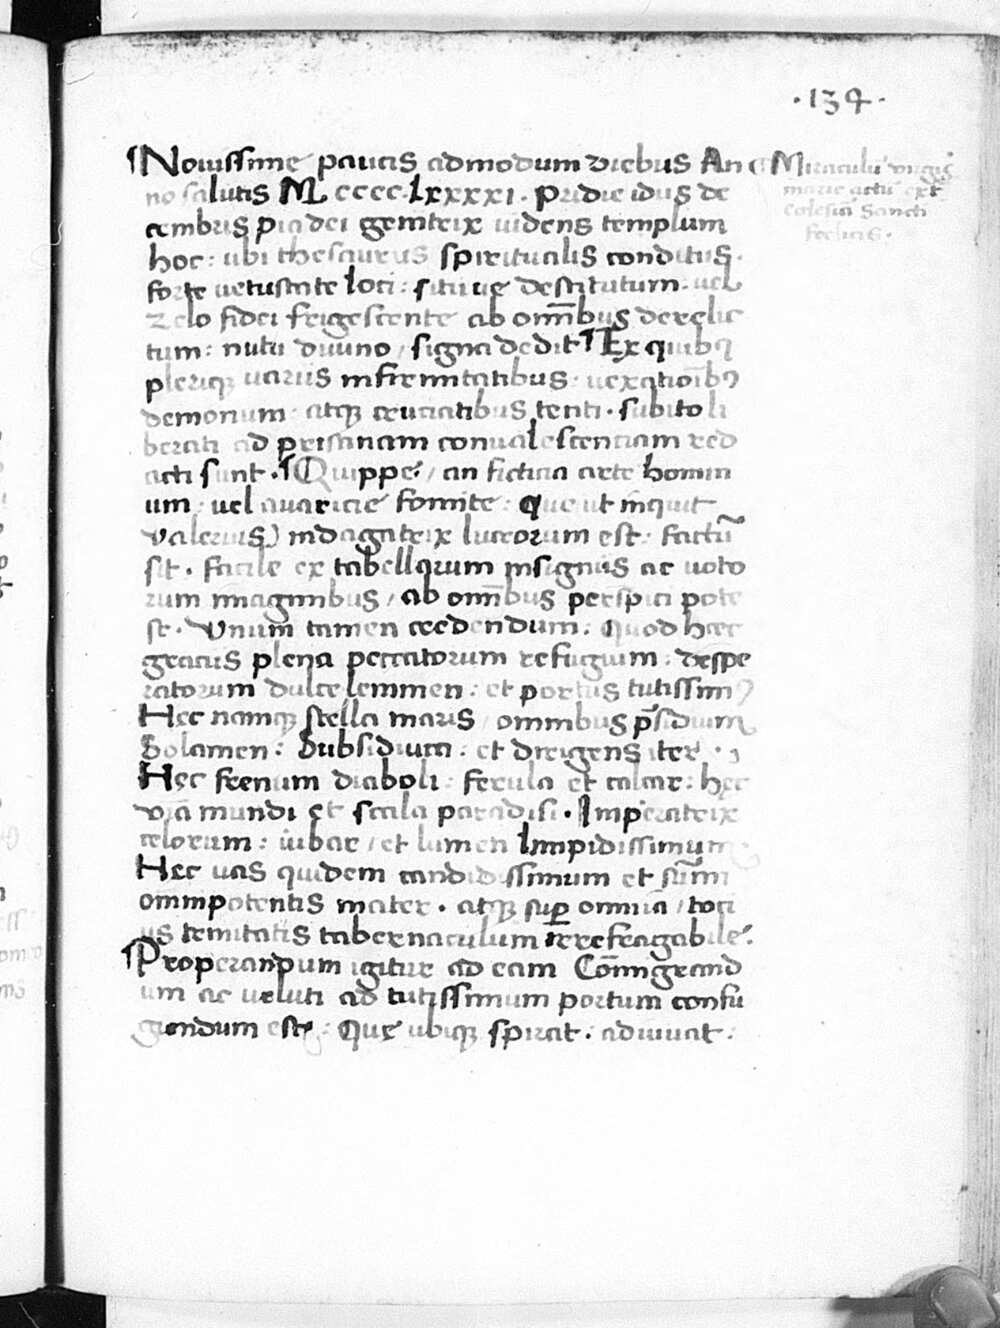 ·134·
¶Nouissime paucis admodum diebus An
no salutis M cccc·lxxxxi· pridie idus de
cembris pia dei genitrix uidens templum
hoc: ubi thesaurus spiritualis conditus·
forte uetustate loci: situ ue destitutum: uel
zelo fidei frigescente ab om̅ibus derelic
tum: nutu diuino / signa dedit·¶Ex quibꝫ
pleriqꝫ uariis infirmitatibus: uexatioīb9
demonum: atqꝫ cruciatibus tenti· subito li
berati ad prisinam conualescentiam red
acti sunt·¶Quippe / an ficticia arte homin
um: uel auaricie fomite: Que ut inquit
Valerius) indagatrix lucrorum est: factū
sit· facile ex tabellarum insigniis ac uoto
rum imaginibus / ab om̅ibus perspici pote
st· Vnum tamen credendum: Quod hec
graciis plena peccatorum refugium: despe
ratorum dulce lemmen: et portus tutissim9
Hec namqꝫ stella maris / omnibus p̄sidium
Solamen: Subsidium: et dirigens iter·
Hec frenum diaboli: ferula et calcar: hec
via mundi et scala paradisi· Imperatrix
celorum: iubar / et lumen limpidissimum·
Hec uas quidem candidissimum et sūmi
omnipotentis mater· atqꝫ suꝑ omnia / toci
us trinitatis tabernaculum irrefragabile·
¶Properandum igitur ad eam Cōmigrand
um ac ueluti ad tutissimum portum confu
giendum est: Que ubiqꝫ spirat· adiuuat:
¶Miraculū virgis̄
marie actū ext
Ecclesiā Sancti
felicis·